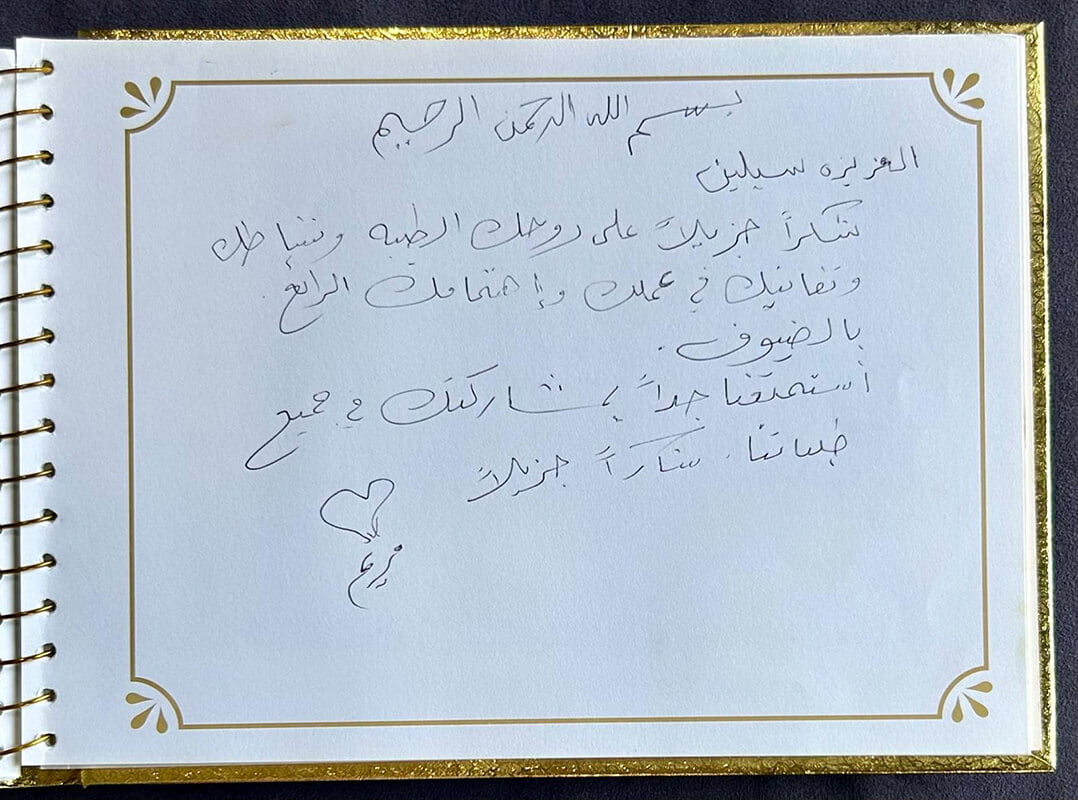 بسم الله الرحمن الرحيم
العزيزه سيلين
شكراً جزيلاً على روحك الطيبه ونشاطك
وتفانيك في عملك وإهتمامك الرائع
بالضيوف.
أستمتعنا جداً بمشاركتك في جميع
طلباتنا. شكراً جزيلاً